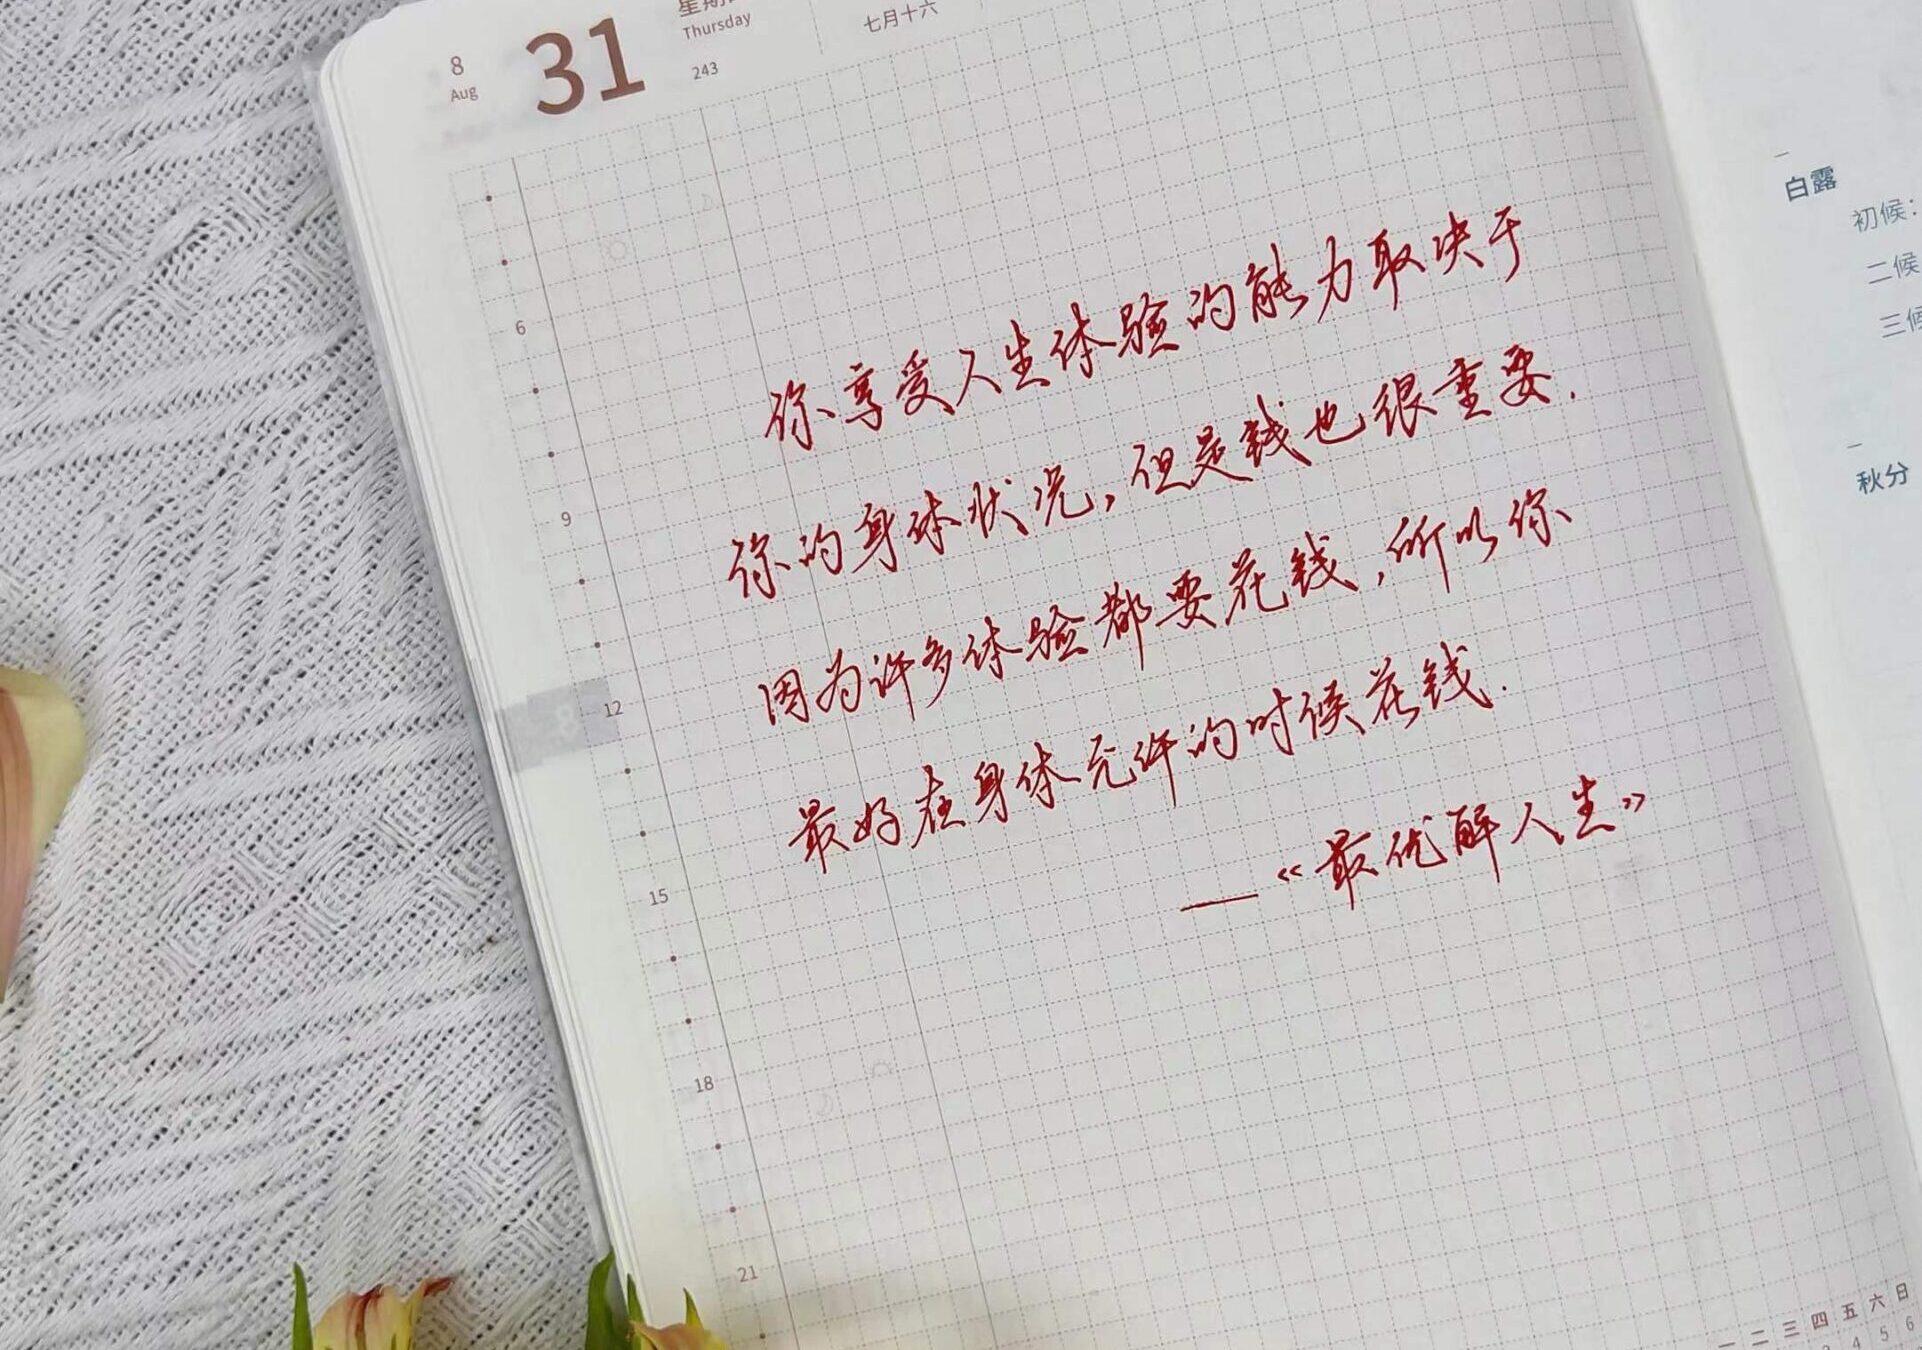 8
Aug
31
Thursday
243
七月十六
你享受人生体验的能力取决于
你的身体状况,但是钱也很重要.
因为许多体验都要花钱,所以你
最好在身体允许的时候花钱.
——《最优解人生》
6
9
12
15
18
21
白露
初候:
二候
三候
秋分
一 二 三 四 五 六 日
4 5 6